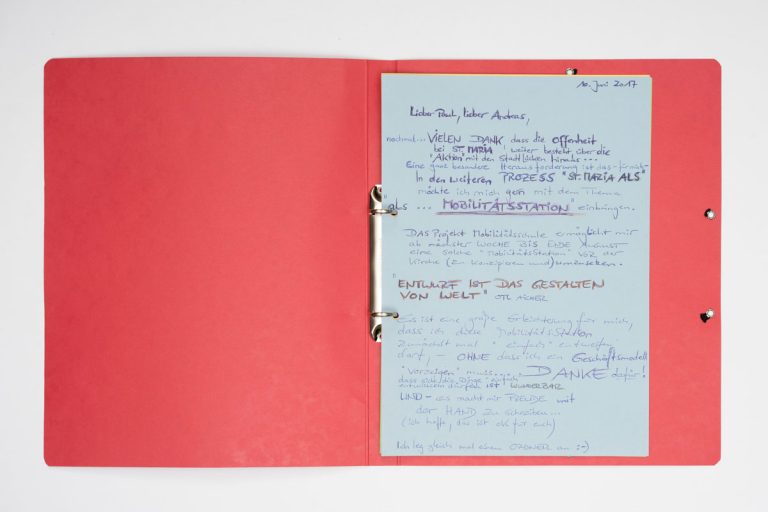 10. Juni 2017
Lieber Paul, lieber Andreas,
nochmal... VIELEN DANK dass die Offenheit
bei ST. MARIA weiter besteht über die
"Aktion mit den Stadtlücken hinaus...
Eine ganz besondere Herausforderung ist das - für mich -
In den weiteren PROZESS "ST. MARIA ALS"
möchte ich mich gern mit dem Thema
"als ... MOBILITÄTSSTATION" einbringen.
DAS Projekt Mobilitätsschule ermöglicht mir
ab nächster WOCHE BIS ENDE August
eine solche "Mobilitätsstation" VOR der
Kirche (zu konzipieren und) umzusetzen.
"ENTWURF IST DAS GESTALTEN
VON WELT" OTL AICHER
Es ist eine große Erleichterung für mich,
dass ich diese Mobilitätsstation
zunächst mal "einfach" entwerfen
darf, - OHNE dass ich ein Geschäftsmodell
"vorzeigen" muss.... DANKE dafür!
dass sich die Dinge einfach
entwickeln dürfen IST WUNDERBAR
UND - es macht mir FREUDE mit
der HAND zu schreiben...
(ich hoffe, das ist ok für euch)
Ich leg gleich mal einen ORDNER an :-)